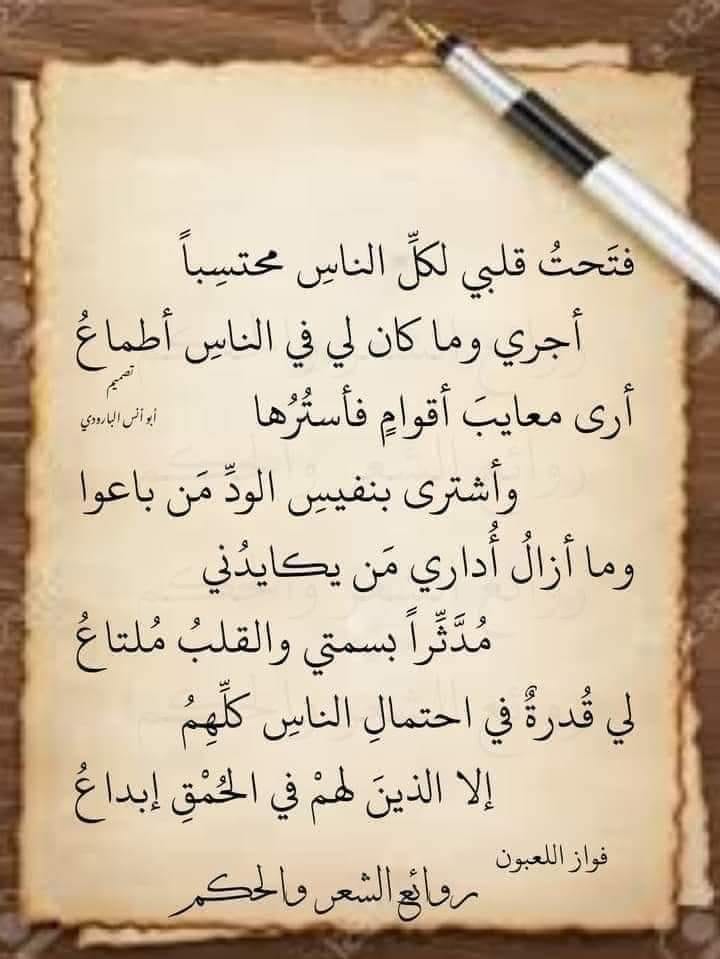 فتَحتُ قلبي لكلِّ الناسِ محتسِباً
أجري وما كان لي في الناسِ أطماعُ
تصميم
أبو أنس البارودي
أرى معايبَ أقوامٍ فأستُرُها
وأشترى بنفيسِ الودِّ مَن باعوا
وما أزالُ أُداري مَن يكايدُني
مُدَّثِّراً بسمتي والقلبُ مُلتاعُ
لي قُدرةٌ في احتمالِ الناسِ كلِّهِمُ
إلا الذينَ لهمْ في الحُمْقِ إبداعُ
فواز اللعبون
روائع الشعر والحكم